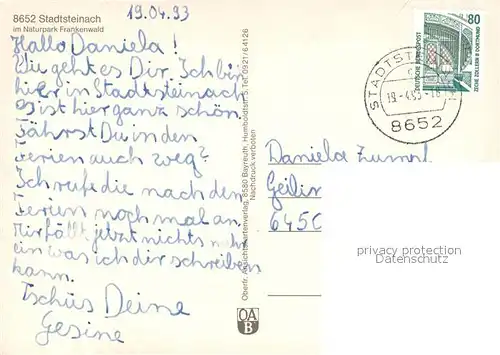 8652 Stadtsteinach
im Naturpark Frankenwald
19.04.93
Hallo Daniela!
Wie geht es Dir. Ich bin
hier in Stadtsteinach
es ist hier ganz schön.
Fährst Du in den
Ferien auch weg?
Ich rufe die nach den
Ferien noch mal an.
Mir fällt jetzt nichts mehr
ein was ich dir schreiben
kann.
Tschüs Deine
Gesine
Oberfr. Ansichtskartenverlag, 8580 Bayreuth, Humboldtstr. 5, Tel. 0921/64126
Nachdruck verboten
OA
B
DEUTSCHE BUNDESPOST
80
ZECHE ZOLLERN II DORTMUND
STADTST
8652
Daniela
Geilin
6450
privacy protection
Datenschutz